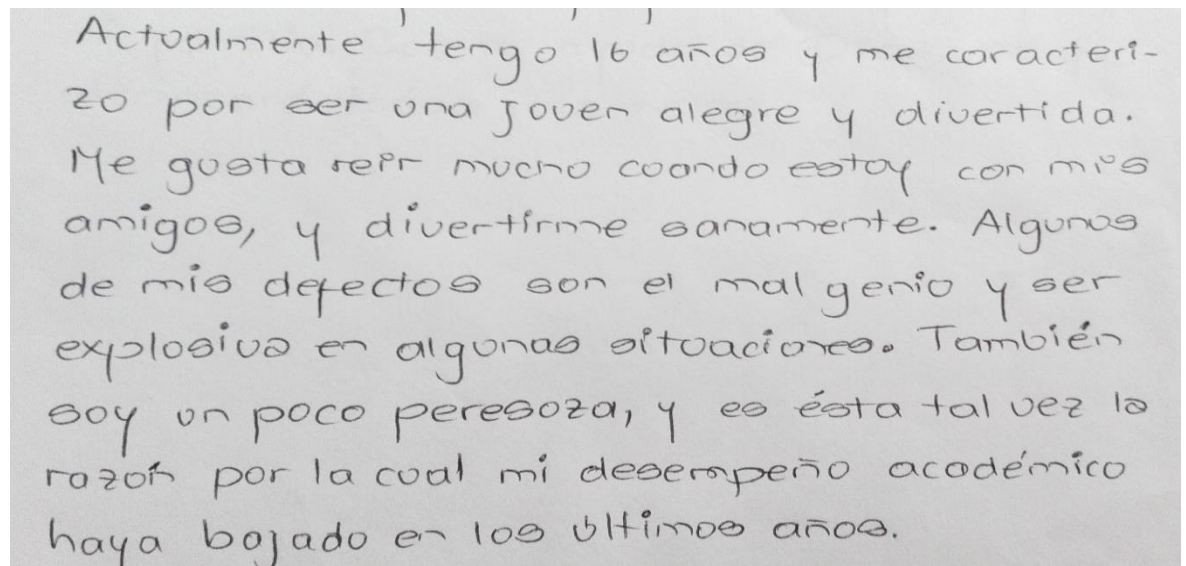 Actualmente tengo 16 años y me caracteri-
zo por ser una joven alegre y divertida.
Me gusta reir mucho cuando estoy con mis
amigos, y divertirme sanamente. Algunos
de mis defectos son el mal genio y ser
explosiva en algunas situaciones. También
soy un poco peresoza, y es ésta tal vez la
razón por la cual mi desempeño académico
haya bajado en los últimos años.